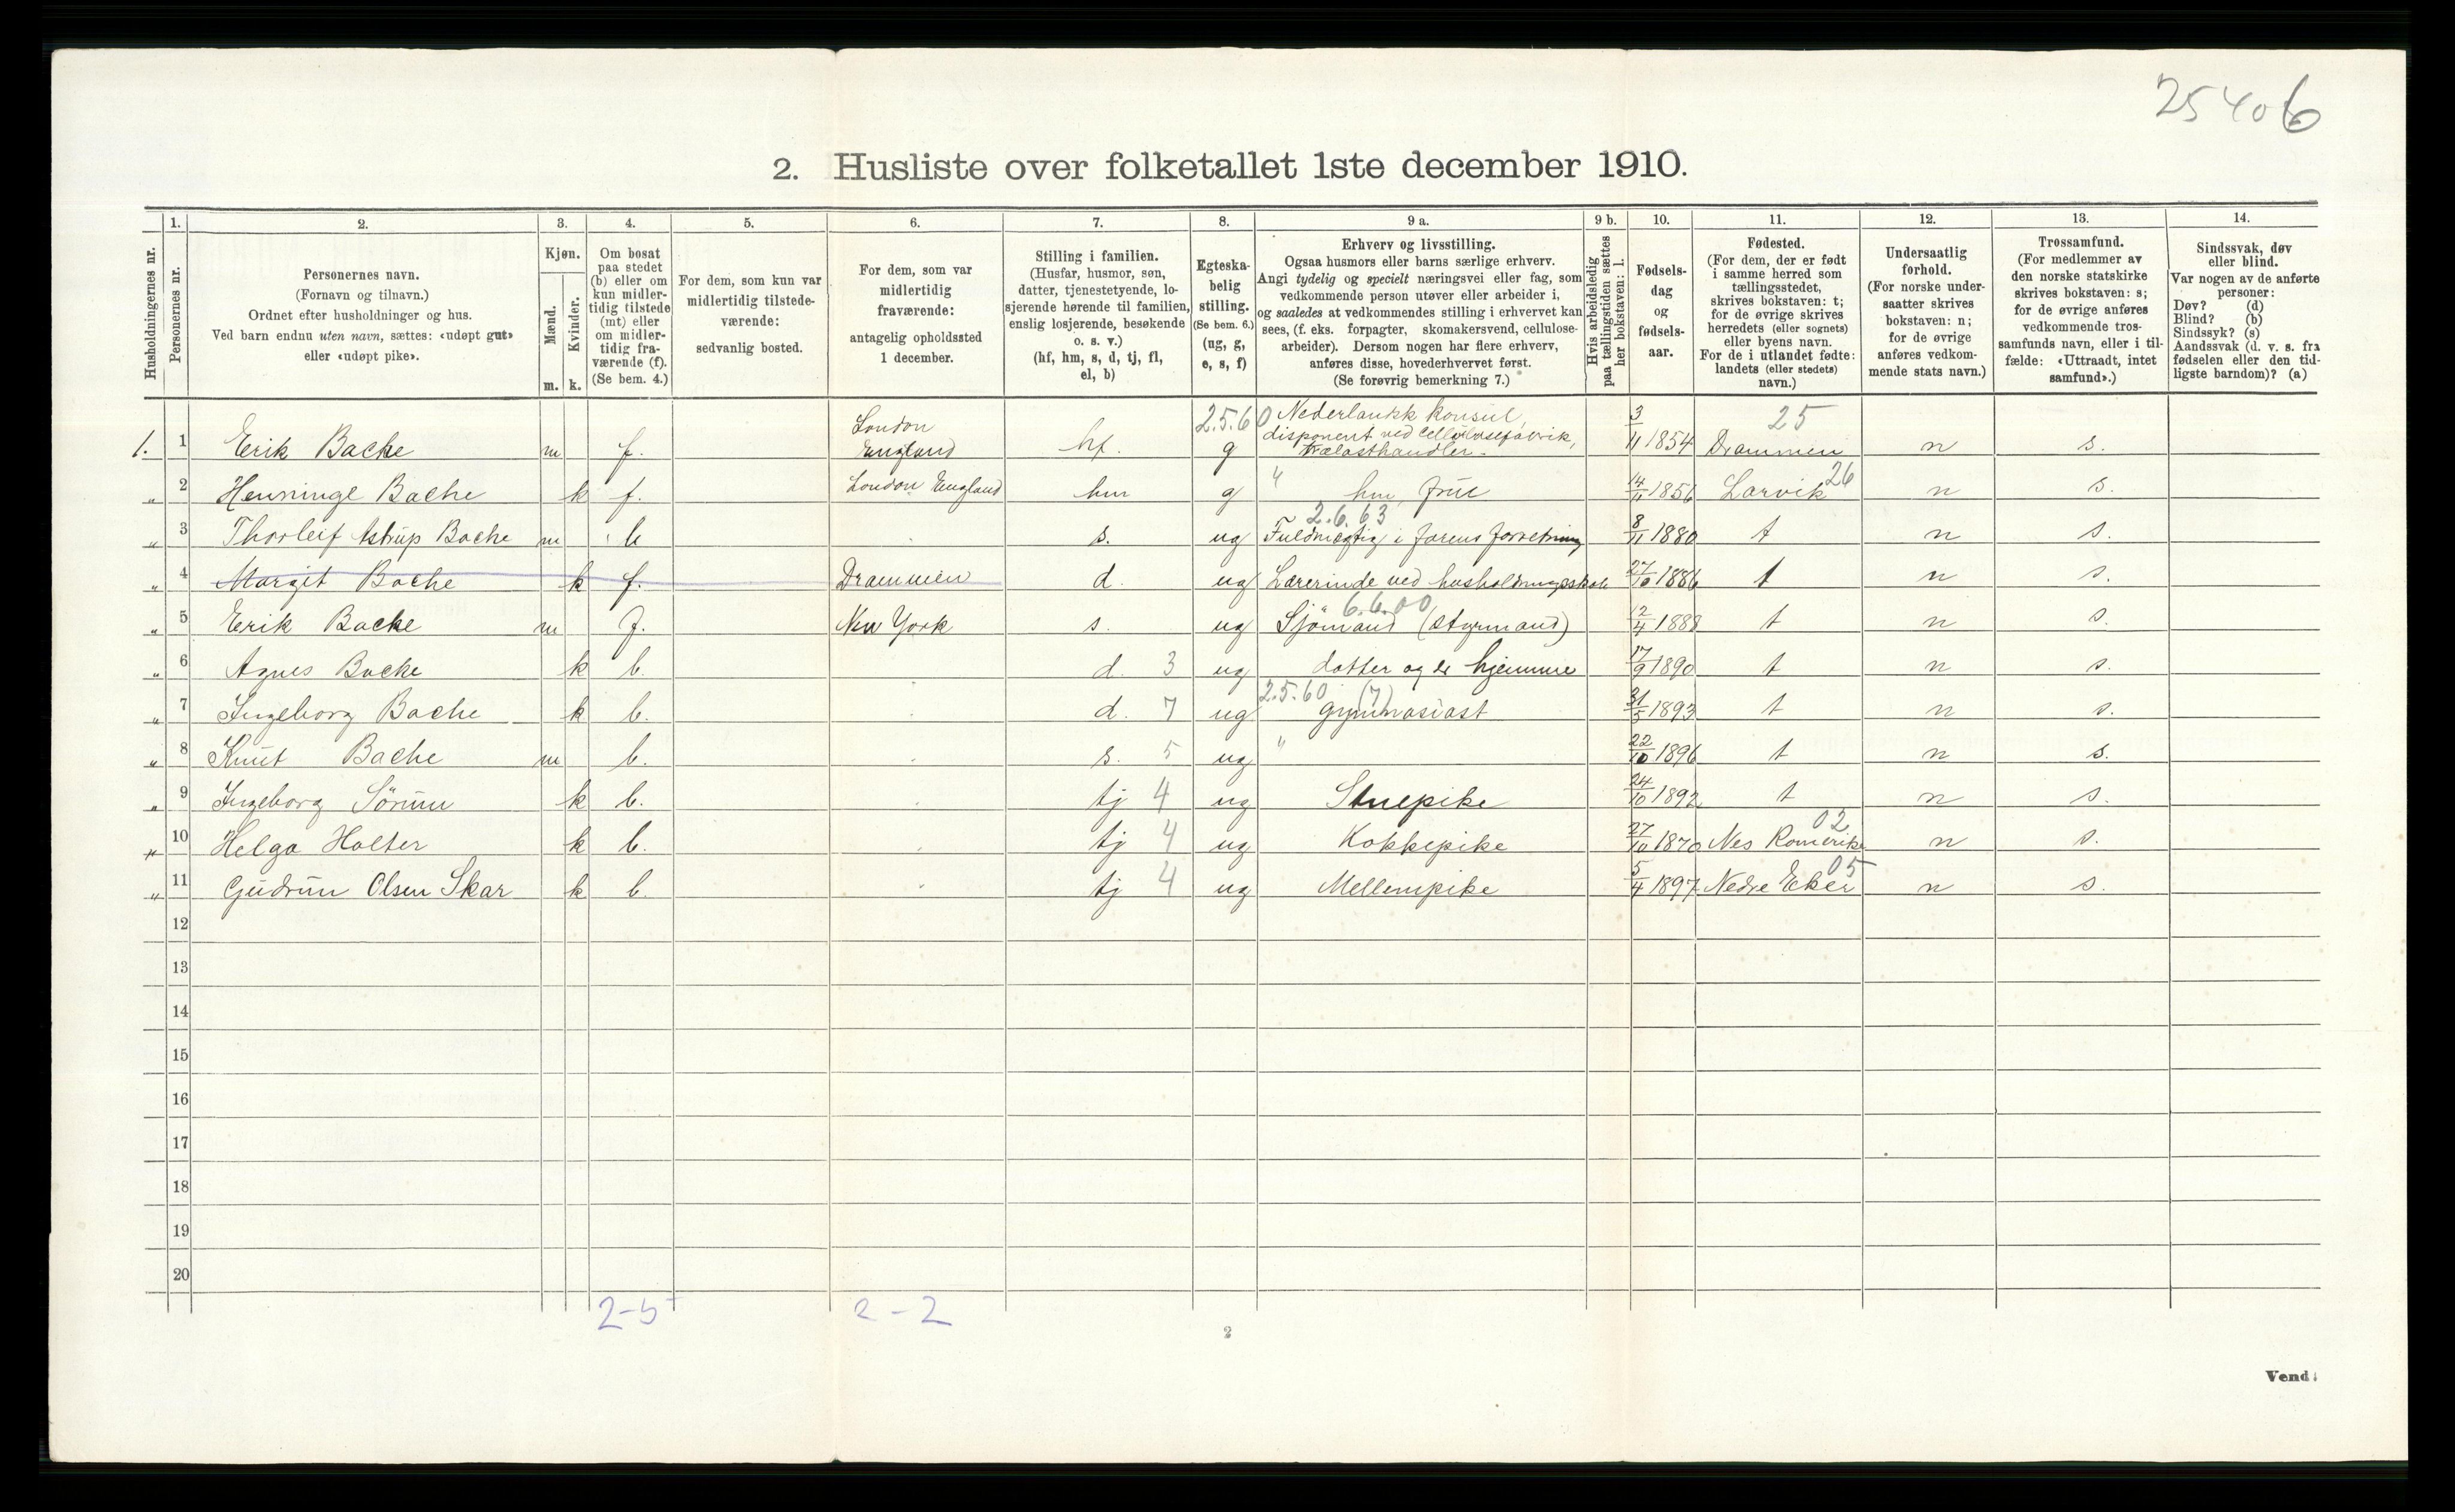 25406
2. Husliste over folketallet 1ste december 1910.
1. 2. 3. 4. 5. 6. 7. 8. 9 a. 9 b. 10. 11. 12. 13. 14.
Husholdningernes nr.
Personernes nr.
Personernes navn.
(Fornavn og tilnavn.)
Ordnet efter husholdninger og hus.
Ved barn endnu uten navn, sættes: «udøpt gut»
eller «udøpt pike».
Kjøn.
Mænd.
Kvinder.
m. k.
Om bosat
paa stedet
(b) eller om
kun midler-
tidig tilstede
(mt) eller
om midler-
tidig fra-
værende (f).
(Se bem. 4.)
For dem, som kun var
midlertidig tilstede-
værende:
sedvanlig bosted.
For dem, som var
midlertidig
fraværende:
antagelig opholdssted
1 december.
Stilling i familien.
(Husfar, husmor, søn,
datter, tjenestetyende, lo-
sjerende hørende til familien,
enslig losjerende, besøkende
o. s. v.)
(hf, hm, s, d, tj, fl,
el, b)
Egteska-
belig
stilling.
(Se bem. 6.)
(ug, g,
e, s, f)
Erhverv og livsstilling.
Ogsaa husmors eller barns særlige erhverv.
Angi tydelig og specielt næringsvei eller fag, som
vedkommende person utøver eller arbeider i,
og saaledes at vedkommendes stilling i erhvervet kan
sees, (f. eks. forpagter, skomakersvend, cellulose-
arbeider). Dersom nogen har flere erhverv,
anføres disse, hovederhvervet først.
(Se forøvrig bemerkning 7.)
Hvis arbeidsledig
paa tællingstiden sættes
her bokstaven: l.
Fødsels-
dag
og
fødsels-
aar.
Fødested.
(For dem, der er født
i samme herred som
tællingsstedet,
skrives bokstaven: t;
for de øvrige skrives
herredets (eller sognets)
eller byens navn.
For de i utlandet fødte:
landets (eller stedets)
navn.)
Undersaatlig
forhold.
(For norske under-
saatter skrives
bokstaven: n;
for de øvrige
anføres vedkom-
mende stats navn.)
Trossamfund.
(For medlemmer av
den norske statskirke
skrives bokstaven: s;
for de øvrige anføres
vedkommende tros-
samfunds navn, eller i til-
fælde: «Uttraadt, intet
samfund».)
Sindssvak, døv
eller blind.
Var nogen av de anførte
personer:
Døv? (d)
Blind? (b)
Sindssyk? (s)
Aandssvak (d. v. s. fra
fødselen eller den tid-
ligste barndom)? (a)
London 2.5.60 Nederlandsk konsul, 25
disponent ved Cellulosefabrik,
1. 1 Erik Bache m f. England hf. g Trælasthandler. 3/11 1854 Drammen n s.
" 2 Henninge Bache k f. London England hm g " hm, frue 14/11 1856 Larvik 26 n s.
2.6.63
" 3 Thorleif Astrup Bache m b s. ug Fuldmægtig i farens forretning 8/11 1880 t n s.
" 4 Margit Bache k f. Drammen d. ug Lærerinde ved husholdningsskole 27/10 1886 t n s.
6.6.00
" 5 Erik Bache m f. New York s. ug Sjömand (Styrmand) 12/4 1888 t n s.
" 6 Agnes Bache k b. d. 3 ug datter og er hjemme 17/9 1890 t n s.
2.5.60 (7)
" 7 Ingeborg Bache k b. d. 7 ug gymnasiast 31/5 1893 t n s.
" 8 Knut Bache m b. s. 5 ug " 22/10 1896 t n s.
" 9 Ingeborg Sörum k b. tj 4 ug Stuepike 24/10 1892 t n s.
" 10 Helga Holter k b. tj 4 ug Kokkepike 27/10 1870 Nes Romerike 02 n s.
" 11 Gudrun Olsen Skar k b. tj 4 ug Mellempike 5/4 1897 Nedre Eker 05 n s.
12
13
14
15
16
17
18
19
20
2-5 2-2
2
Vend!